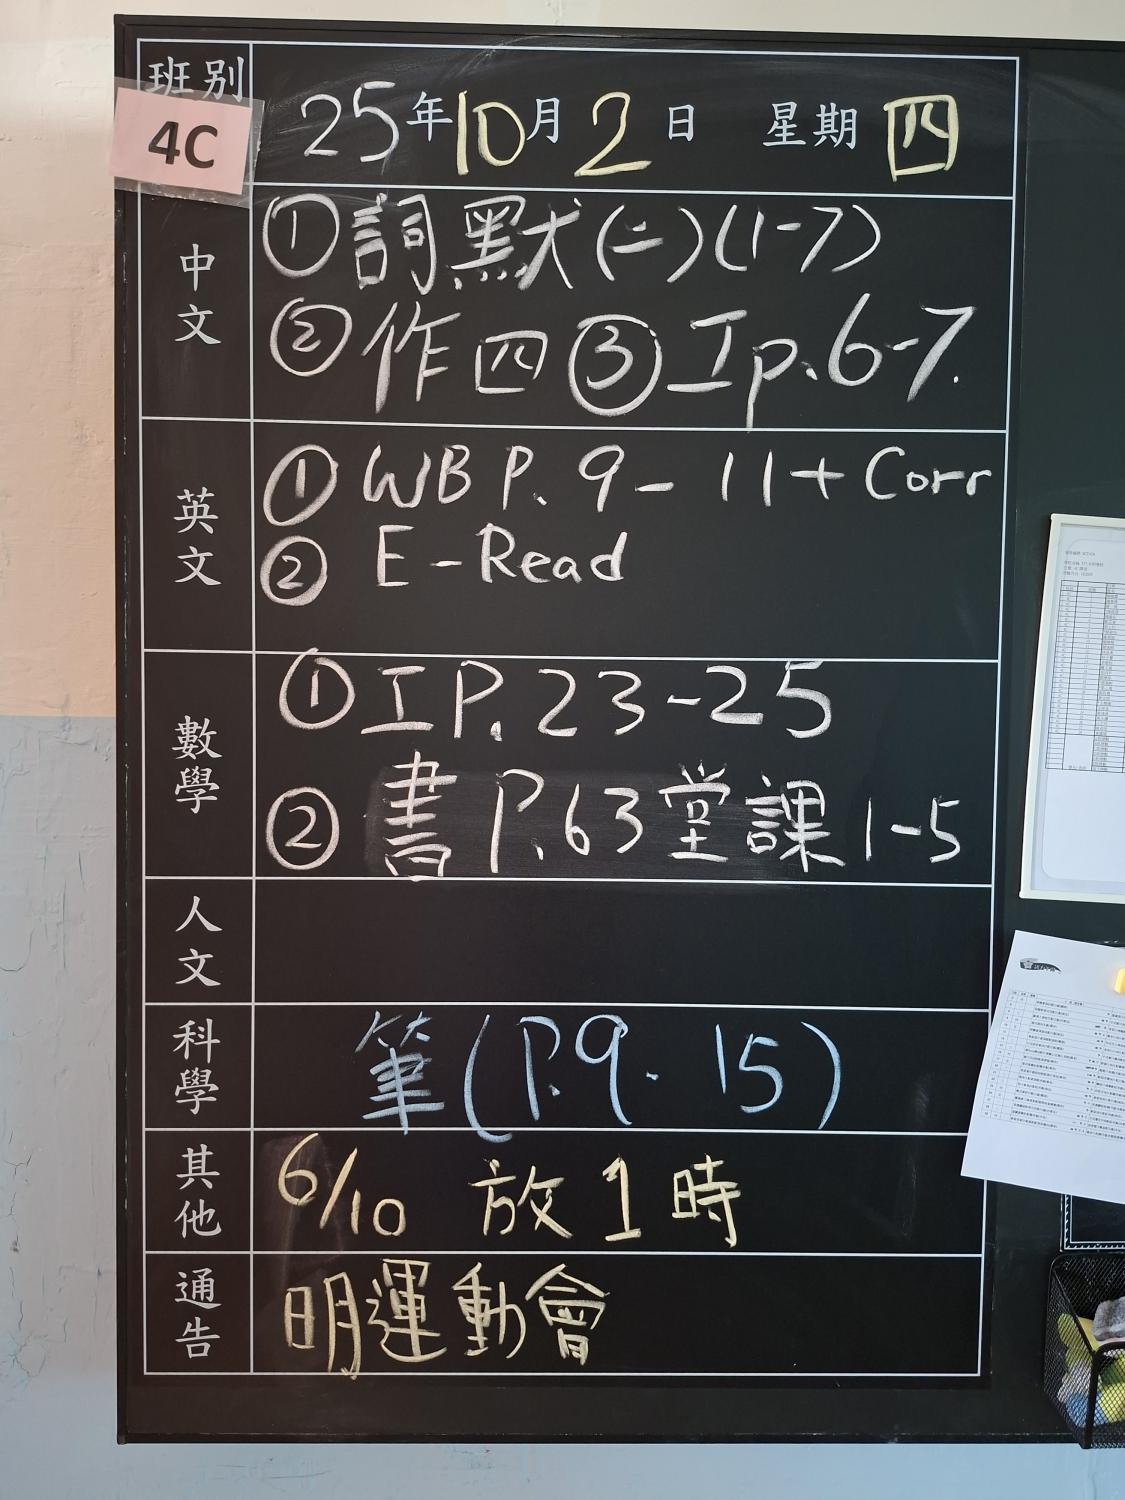 班別
4C
25年10月2日 星期四
中文
①詞默(二)(1-7)
②作四③工p.6-7.
英文
① WB P. 9 - 11 + Corr
② E-Read
數學
①工P.23-25
②書P.63堂課1-5
人文
科學
筆(P.9. 15)
其他
6/10 放1時
通告
明運動會